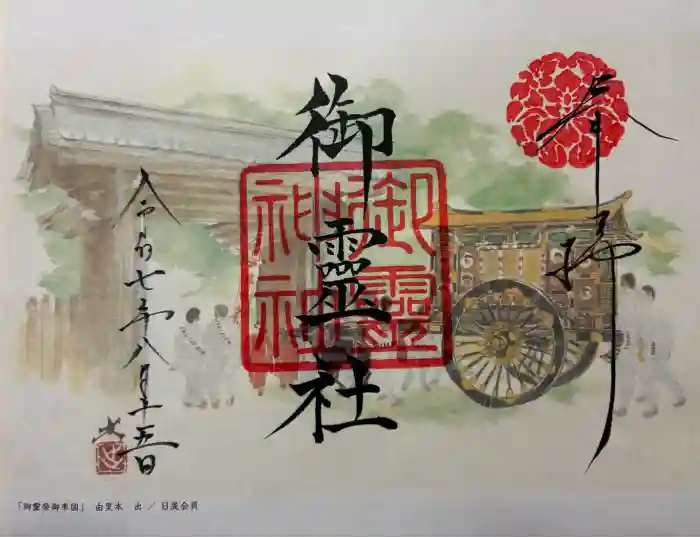 奉拝
御靈社
御靈社社
令和七年八月十五日
「御霊祭御車図」 由里本 出 / 日展会員